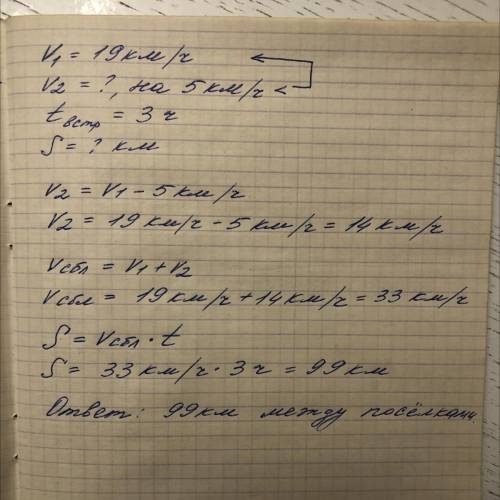 V₁ = 19 км/ч
V₂ = ?, на 5 км/ч <
t встр = 3 ч
S = ? км
V₂ = V₁ - 5 км/ч
V₂ = 19 км/ч - 5 км/ч = 14 км/ч
Vсбл = V₁ + V₂
Vсбл = 19 км/ч + 14 км/ч = 33 км/ч
S = Vсбл · t
S = 33 км/ч · 3 ч = 99 км
Ответ: 99 км между посёлками.